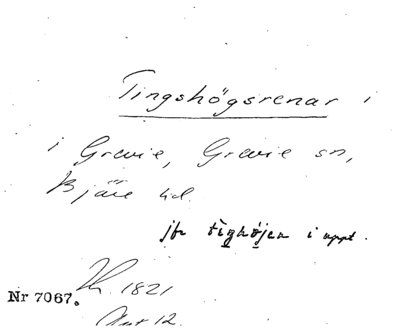 Tingshögsrenar i
i Grevie, Grevie sn,
Bjäre hd.
jfr tighöjen i uppt.
1821
Nr 7067.
12.